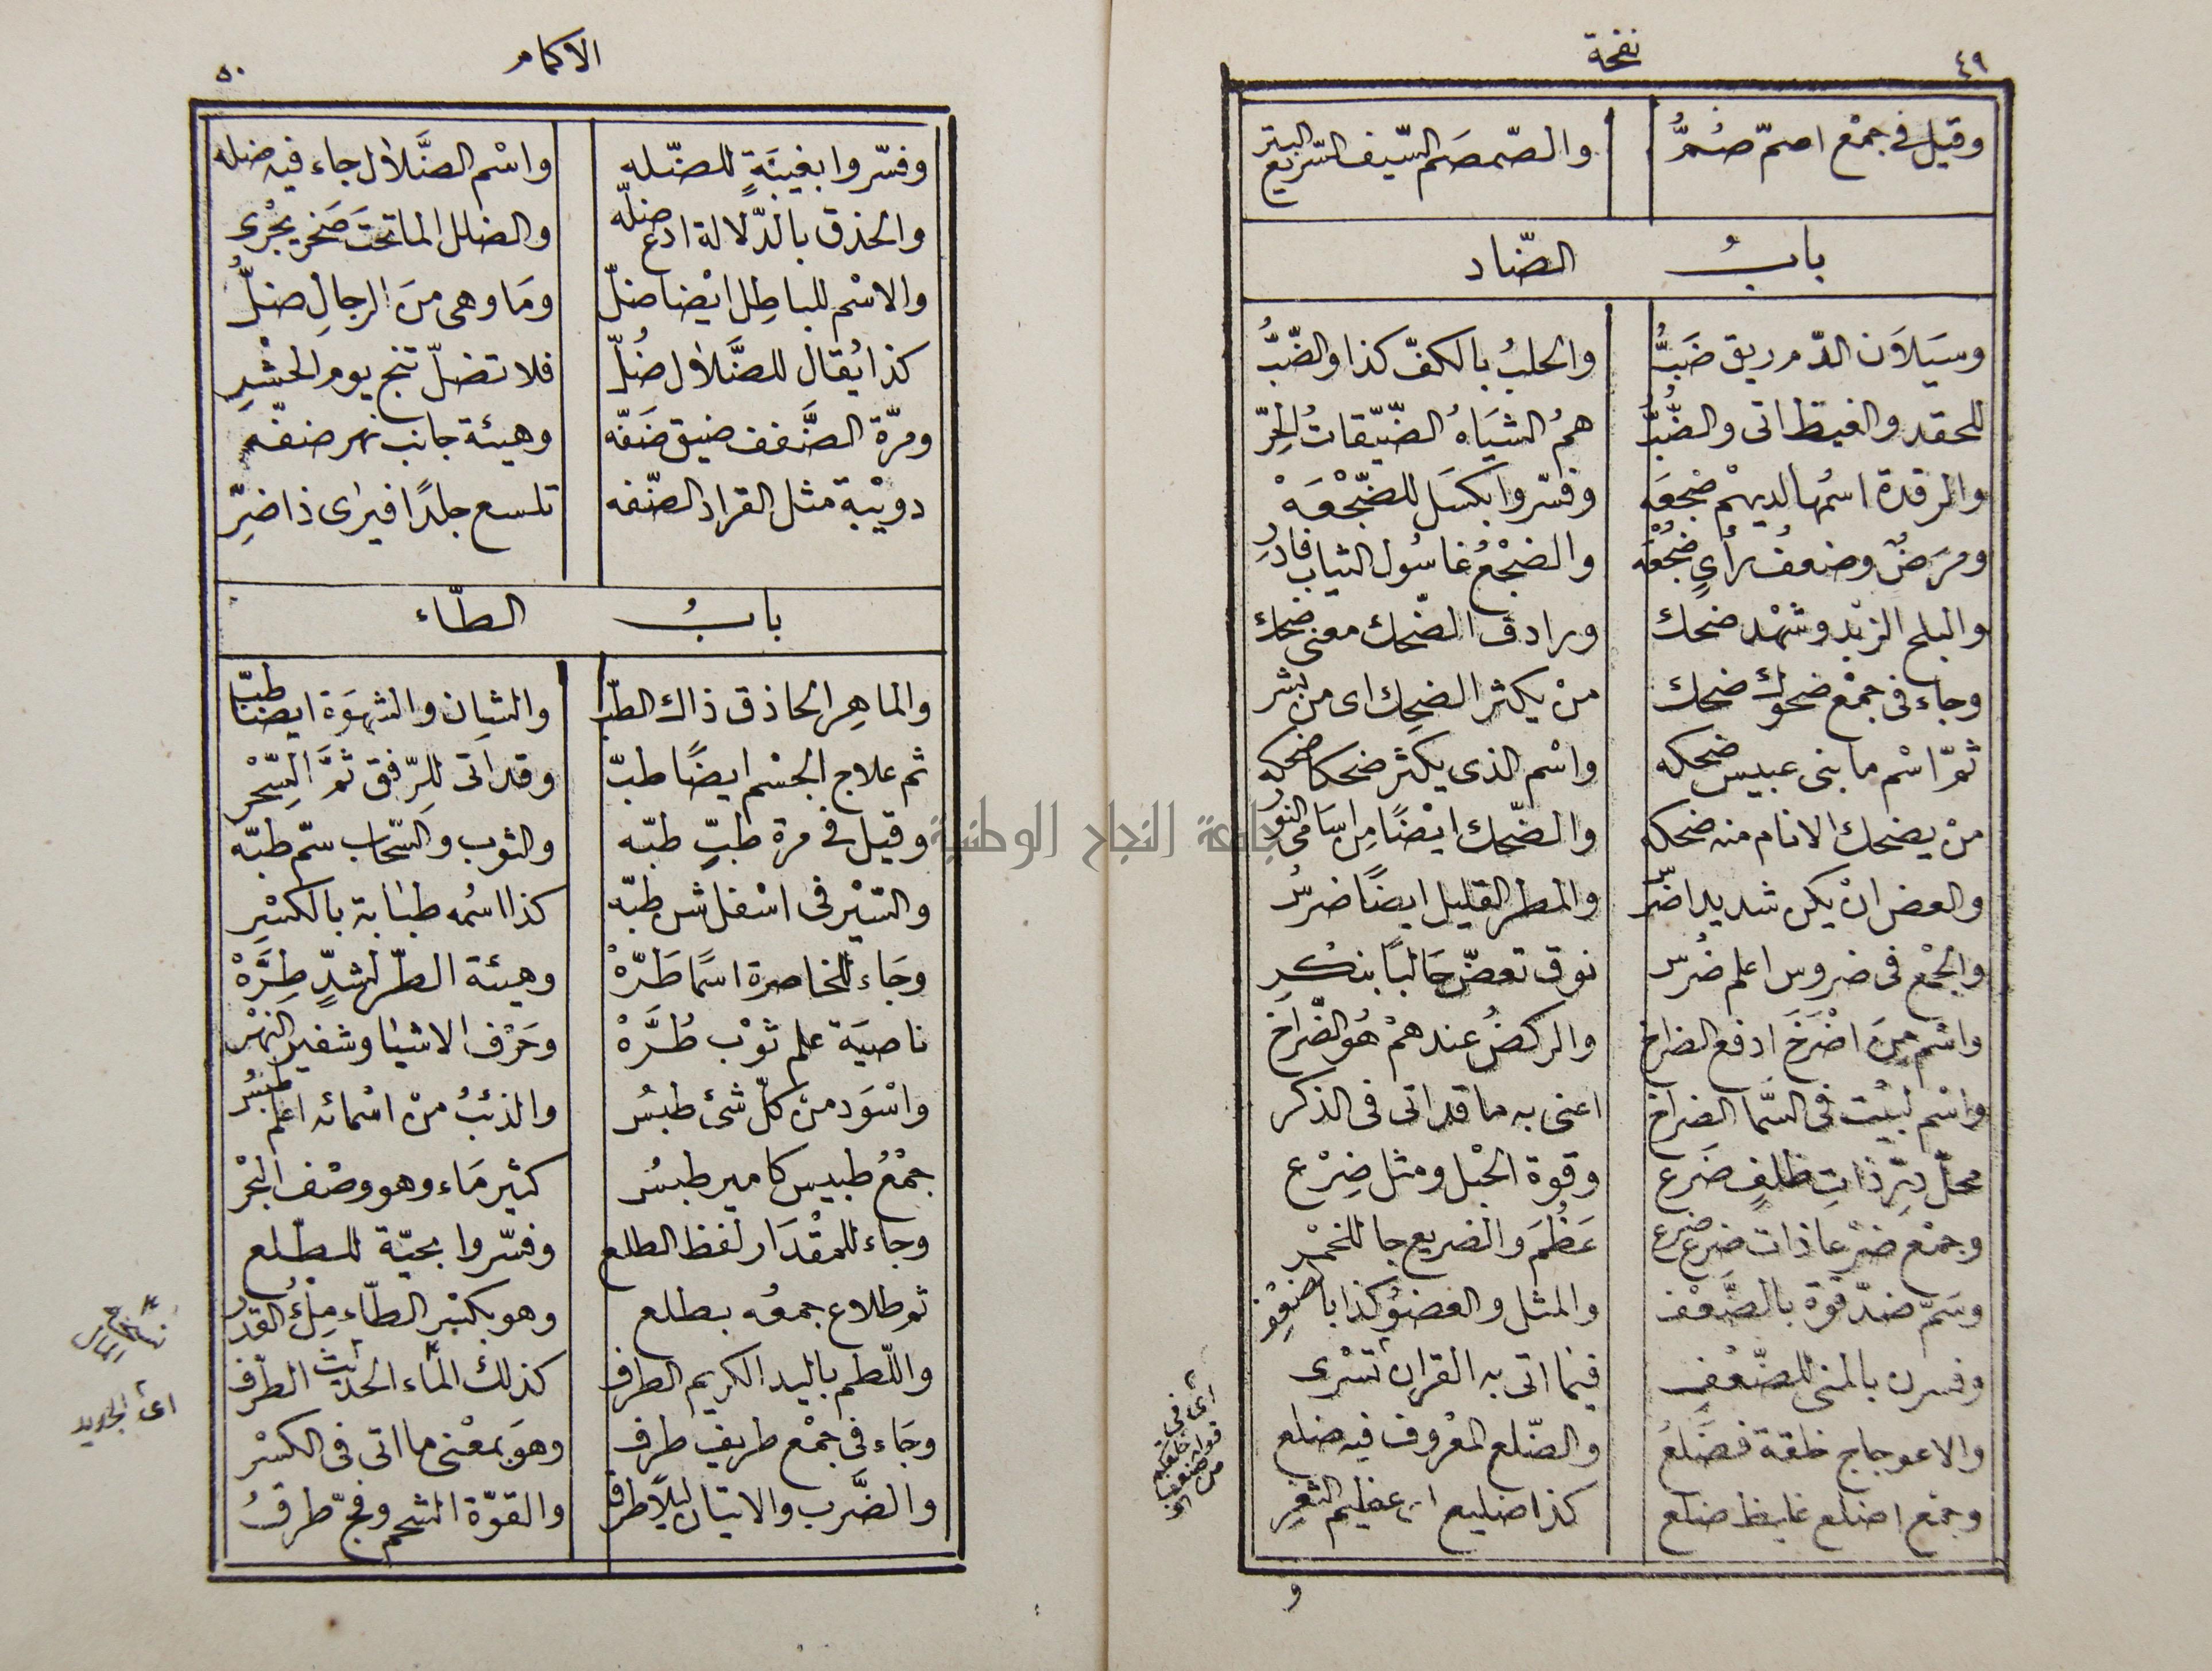 ٤٩
نفحة
وقيل في جمْع اصمّ صُمُّ والصّمصَم السّيف السّريع البتر
بابُ الضّاد
وسيَلاَن الدّم ريق ضَبُّ والحلبُ بالكفّ كذا والضّبُّ
للحقد والغيظ اتى والضُّبُّ همُ الشيَاهُ الضّيّقاتُ
والرقدة اسمُها لديهمْ ضجعَه وفسّروا بكسَل للضّجْعَهْ
ومرَضٌ وضعفُ رأيٍ ضُجْعَه والضجْعُ غاسُول الثياب فادرِ
والبلح الزبد وشهْد ضحك ورادف الضّحك معنى ضحك
وجاء في جمْع ضحوك ضحك منْ يكثر الضحِك اى من بشر
ثمّ اسْم ما بنى عبيس ضحكه واسْم الذى يكثر ضحكا ضحكه
منْ يضحك الانام منه ضحكه والضّحك ايْضًا مِن اسَامى النوْر
والعض انْ يكن شديدا ضرّس والمطر القليل ايضًا ضرسُ
والجمْع فى ضروس اعلم ضُرس نوق تعضّ حَالبًا بنكْرِ
واسْم مِنَ اضْرَخَ ادفع الضراخ والركضُ عندهمْ هُو الضّراخ
واسْم لبيْت فى السَّما الضراخ اعنى به ما قد اتى فى الذكر
محلّ درّ ذاتِ ظلفٍ ضَرع وقوة الحْبل ومثل ضِرْع
وجمْع ضرْعا ذات ضرع ضرع عَظُمَ والضريع جا للخمْر
وسَمّ ضدّ قوّة بالضَّعْف والمثل والعضوُ كذا با ضعْفِ
وفسرن بالمنى للضّعْفِ فيما اتى به القران تسْرى
والاعوجاج خلقة فضَلَعُ والضّلع المعْروف فيه ضلع
وجمْع اضلع غليظ ضلع كذا ضليع اى عظيم الثغرِ
و
الاكمام
٥٠
وفسّروا بغيبَةٍ للضّله واسْم الضَّلاَل جاء فيه ضله
والحذق بالدّلالة ادع ضلّه والضلل الما تحتَ صَخر يجْرى
والاسْم للباطِل ايْضا ضلّ ومَا وهى منَ الرجالِ ضلُّ
كذا يُقال للضَّلاَل ضُلّ فلا تضلّ تنج يوم الحشْرِ
ومرّة الضَّفف ضيق ضَفّه وهيئة جانب نهر ضفّه
دويْبة مثل القراد الضّفه تلسع جلدًا فيرى ذا ضرِّ
بابُ الطّاء
والماهِر الحاذق ذاك الطبّ والشان والشهوَة ايضا طبّ
ثم علاج الجسْم ايضًا طبّ وقد اتى للرّفق ثمَّ السِّحْر
وقيل فى مرة طبٍّ طبّه والثوب والسّحاب سمّ طبّه
والسّيْر فى اسْفل شن طبّه كذا اسُمه طبَابة بالكسْرِ
وجَاء للخاصرة اسمًا طَرّهْ وهيئة الطّر لشدٍّ طِرَّهْ
ناصيَة علم ثوْب طُرَّهْ وحَرْف الاشيا وشفير النهْر
واسْوَد منْ كلّ شئ طبسُ والذئبُ منْ اسْمائه اعلم طبسُ
جمْعُ طبيس كامير طبسُ كثير مَاء وهو وصْف البحْر
وجاء للمقْدَار لفظ الطلع وفسّروا بحيّة للطّلع
ثم طلاع جمعُه بطلع وهو بكسْرِ الطّاء مِلءُ القدْر
واللّطم باليد الكريم الطرف كذلك الماء الحديث الطّرْف
وجَاء فى جمْع طريف طرف وهوَ بمعْنى ما اتى فى الكسْر
والضَّرب والاتيان ليلاً طرق والقوّة الشحم وفخّ طرقُ
اى الجديد
جامعة النجاح الوطنية